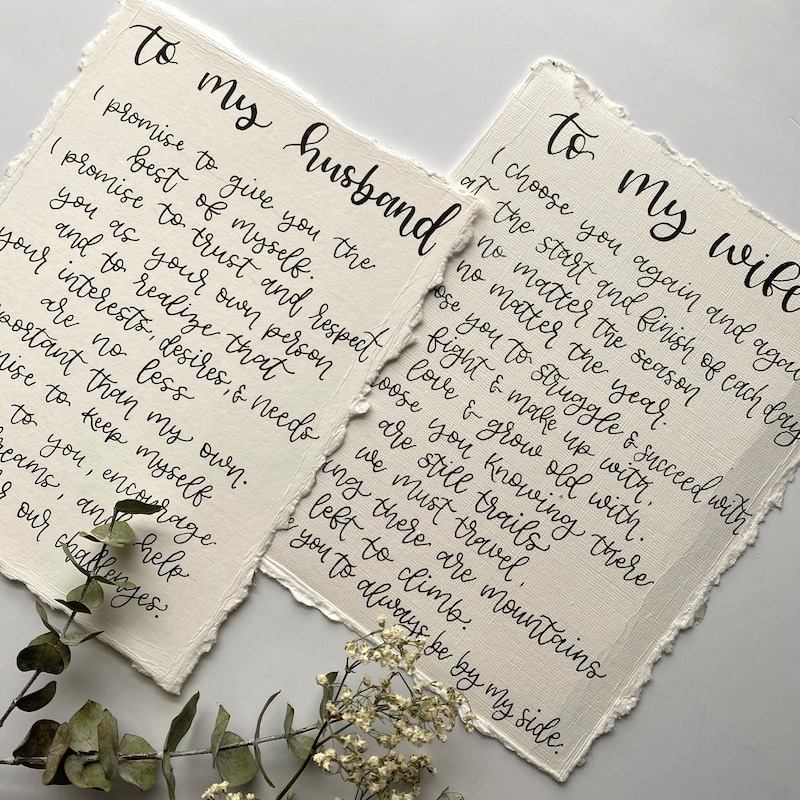 to my husband
I promise to give you the
best of myself.
I promise to trust and respect
you as your own person
and to realize that
your interests, desires, & needs
are no less
portant than my own.
mise to keep myself
to you, encourage
reams, and help
our challenges.
to my wife
I choose you again and again
at the start and finish of each day
no matter the season
no matter the year.
ose you to struggle & succeed with
fight & make up with,
love & grow old with.
oose you knowing there
are still trails
we must travel,
ing there are mountains
left to climb.
you to always be by my side.